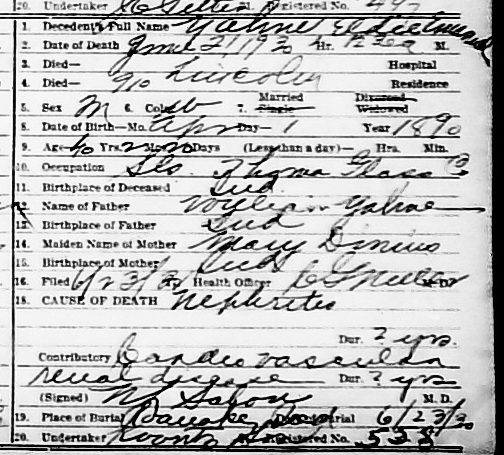 20. Undertaker Registered No. 497
1. Decedent's Full Name Yahne
2. Date of Death June 21 1930 Hr. M.
3. Died— Hospital
4. Died— 910 Lincoln Residence
5. Sex M 6. Color W 7. Married Single Divorced Widowed
8. Date of Birth—Mo. Apr Day— 1 Year 1890
9. Age— 40 Yrs. 2 Mo. 20 Days (Less than a day)— Hrs. Min.
10. Occupation Glass
11. Birthplace of Deceased Ind
12. Name of Father William Yahne
13. Birthplace of Father Ind
14. Maiden Name of Mother Mary Dinius
15. Birthplace of Mother Ind
16. Filed 6/23/30 Health Officer M. D.
18. CAUSE OF DEATH Nephritis
Dur. ? yrs.
Contributory Cardio vascular
renal disease Dur. ? yrs
(Signed) M. D.
19. Place of Burial Roanoke Ind Burial 6/23/30
20. Undertaker Koontz Registered No. 538